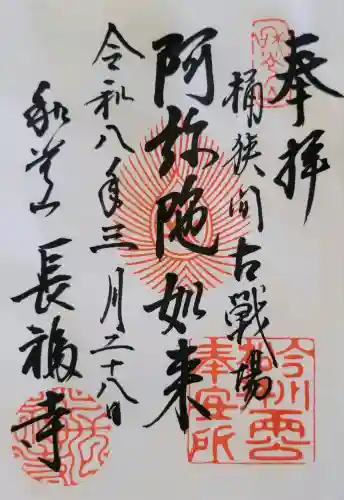 奉拝
桶狭間古戦場
阿弥陀如来
令和八年三月二十八日
和光山
長福寺
今川義元公
奉安所